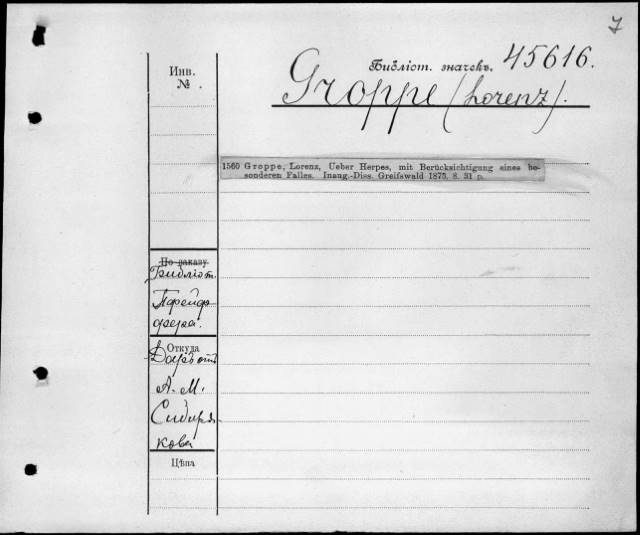 7
Инв.
№.
Библіот. значекъ. 45616.
Groppe (Lorenz).
1560 Groppe, Lorenz, Ueber Herpes, mit Berücksichtigung eines be-
sonderen Falles. Inaug.-Diss. Greifswald 1873. 8. 31 p.
По заказу
Библіот.
Пфейф
фера.
Откуда
Даръ отъ
А. М.
Сибиря-
кова
Цѣна